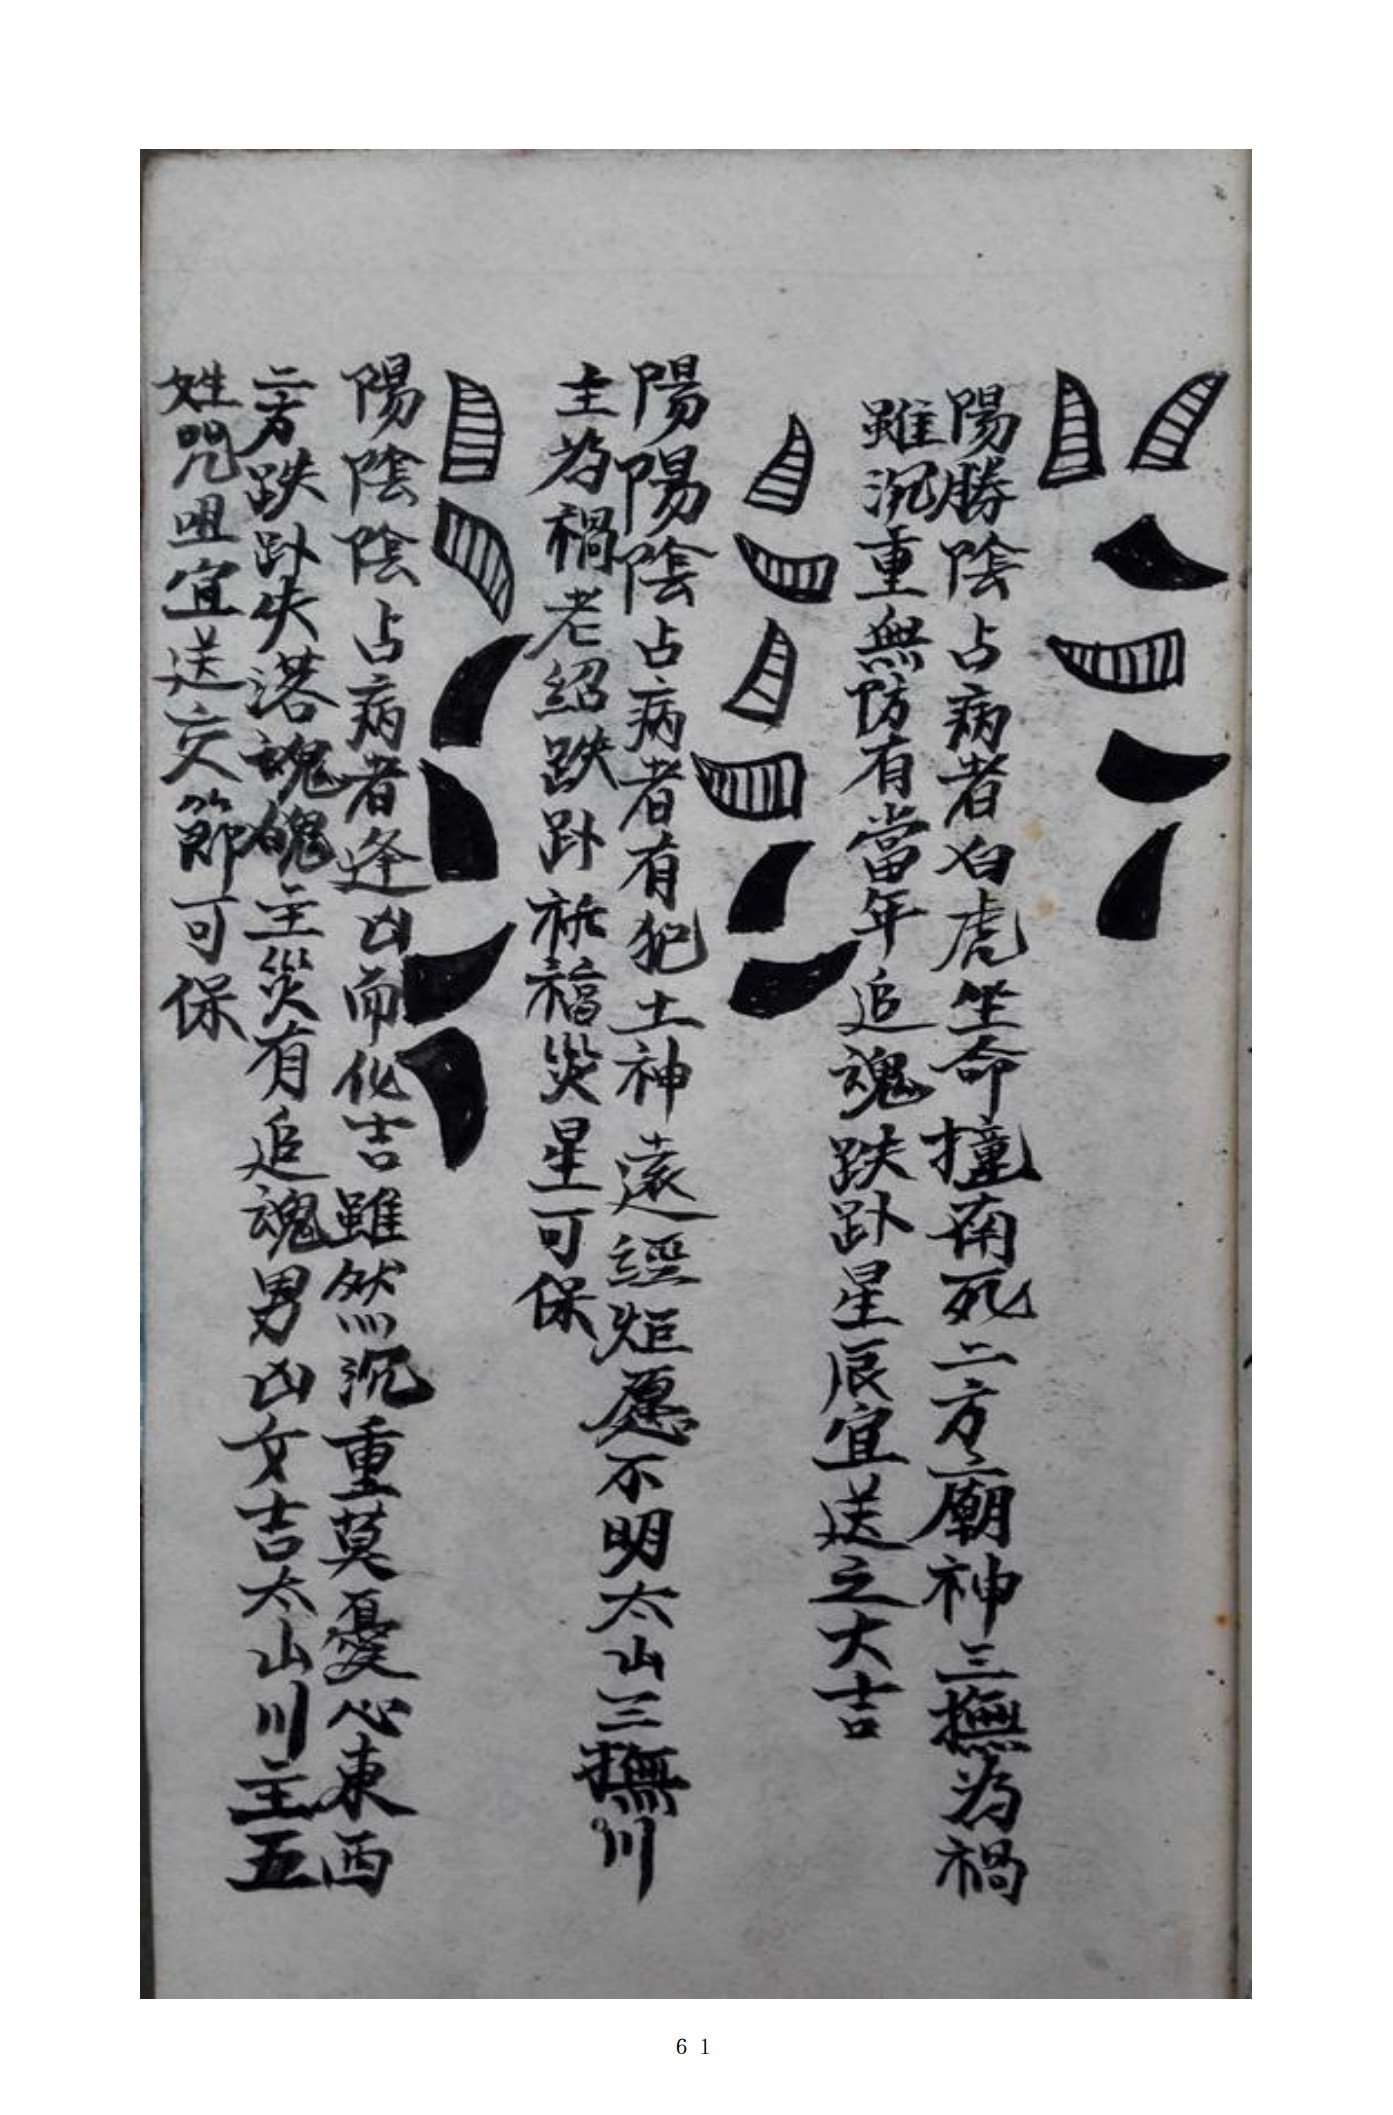 陽勝陰占病者白虎坐命撞南死二方立廟神三撫為禍
雖沉重無防有當年追魂跌卦星辰宜送之大吉
陽陽陰占病者有犯土神遠經炬愿不明太山三撫川
主為禍老紹跌卦福災星可保
陽陰陰占病者逢凶而化吉雖然沉重莫憂心東西
二方跌卦失落魂魄主災有追魂男凶女吉太山川主五
姓咒咀宜送交節可保
61